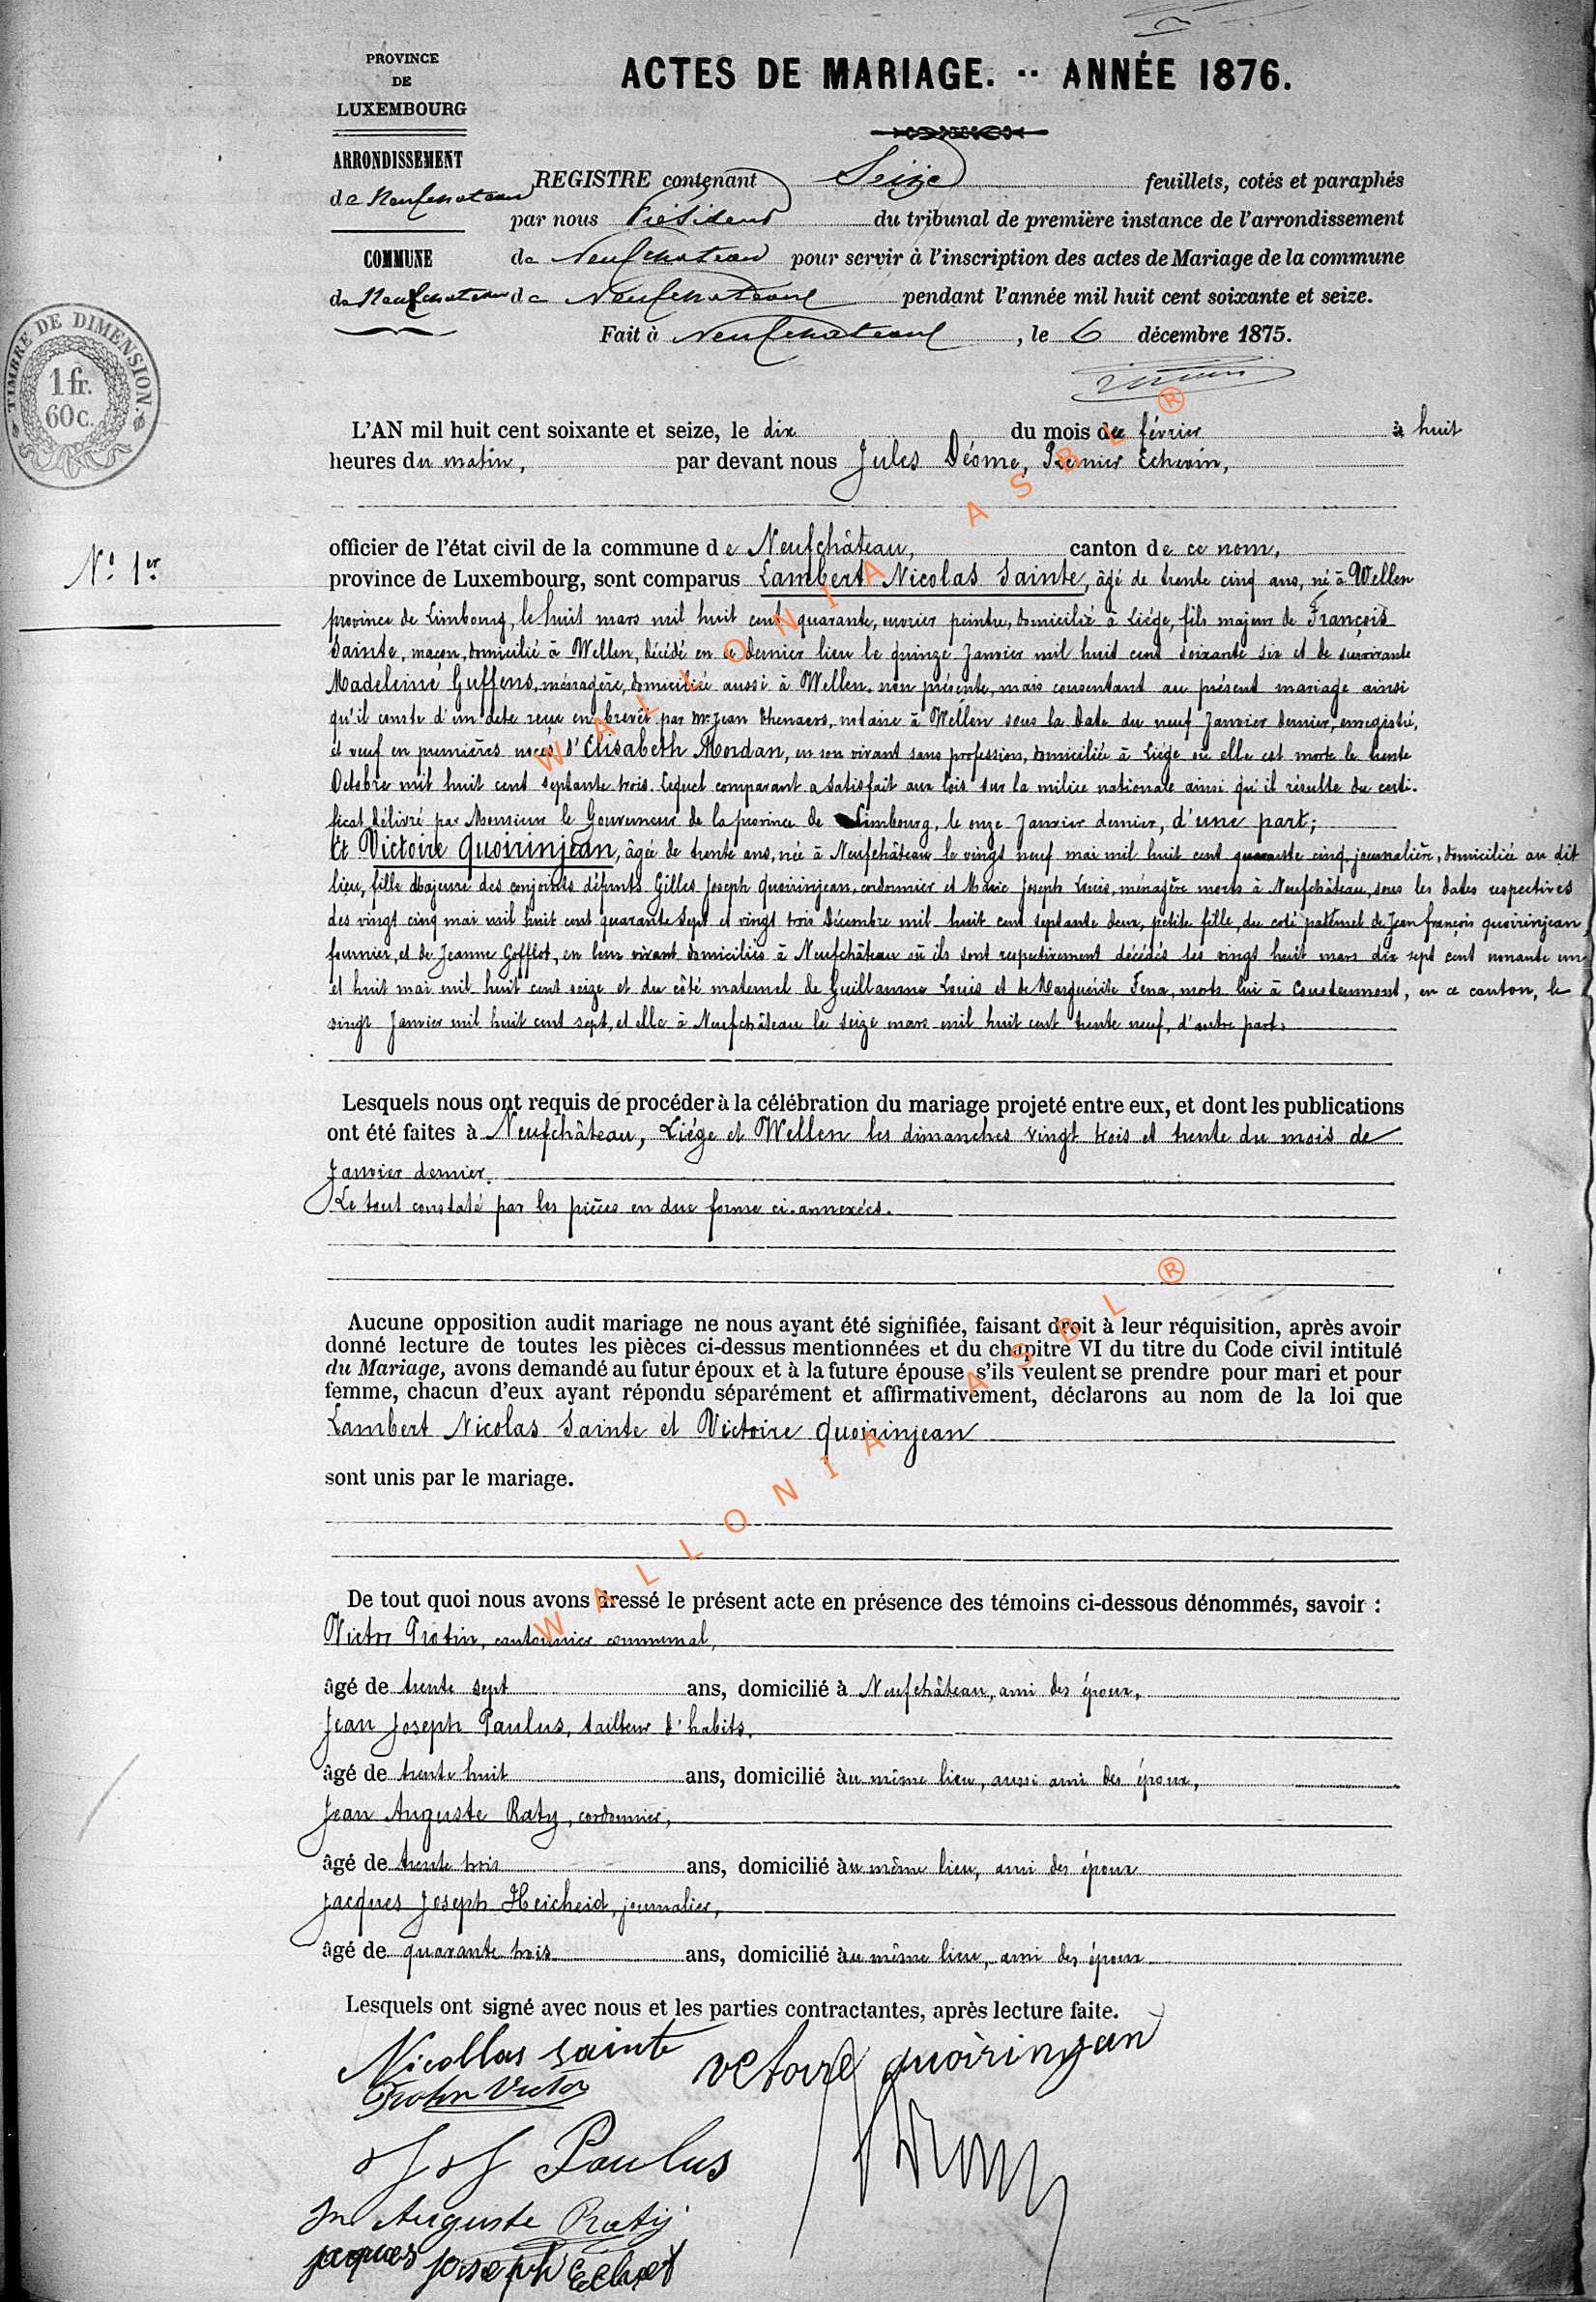 PROVINCE
DE
LUXEMBOURG
ARRONDISSEMENT
de Neufchateau
COMMUNE
de Neufchateau
TIMBRE DE DIMENSION.
1 fr.
60 c.
ACTES DE MARIAGE. -- ANNÉE 1876.
REGISTRE contenant Seize feuillets, cotés et paraphés
par nous Président du tribunal de première instance de l'arrondissement
de Neufchateau pour servir à l'inscription des actes de Mariage de la commune
de Neufchateau pendant l'année mil huit cent soixante et seize.
Fait à Neufchateau, le 6 décembre 1875.
L'AN mil huit cent soixante et seize, le dix du mois de février à huit
heures du matin, par devant nous Jules Déome, Premier Echevin,
officier de l'état civil de la commune de Neufchâteau, canton de ce nom,
N° 1er
province de Luxembourg, sont comparus Lambert Nicolas Sainte, âgé de trente cinq ans, né à Wellen
province de Limbourg, le huit mars mil huit cent quarante, ouvrier peintre, domicilié à Liége, fils majeur de François
Sainte, maçon, domicilié à Wellen, décédé en ce dernier lieu le quinze Janvier mil huit cent soixante six et de survivante
Madeleine Guffens, ménagère, domiciliée aussi à Wellen, non présente, mais consentant au présent mariage ainsi
qu'il conste d'un acte recu en brevêt par Mr Jean Thenaers, notaire à Wellen sous la date du neuf Janvier dernier, enregistré,
et veuf en premières noces d'Elisabeth Mordan, en son vivant sans profession, domiciliée à Liége où elle est morte le trente
Octobre mil huit cent septante trois. Lequel comparant a satisfait aux lois sur la milice nationale ainsi qu'il résulte du certi-
ficat délivré par Monsieur le Gouverneur de la province de Limbourg, le onze Janvier dernier, d'une part;
Et Victoire Quoirinjean, âgée de trente ans, née à Neufchâteau le vingt neuf mai mil huit cent quarante cinq, journalière, domiciliée au dit
lieu, fille majeure des conjoints défunts Gilles Joseph Quoirinjean, cordonnier et Marie Joseph Louis, ménagère morts à Neufchâteau, sous les dates respectives
des vingt cinq mai mil huit cent quarante sept et vingt trois Décembre mil huit cent septante deux, petite fille, du coté paternel de Jean françois quoirinjean,
fournier, et de Jeanne Gofflot, en leur vivant domiciliés à Neufchâteau où ils sont respectivement décédés les vingt huit mars dix sept cent nonante un
et huit mai mil huit cent seize et du côté maternel de Guillaume Louis et de Marguérite Fena, morts lui à Cousteumont, en ce canton, le
vingt Janvier mil huit cent sept, et elle à Neufchâteau le seize mars mil huit cent trente neuf, d'autre part.
Lesquels nous ont requis de procéder à la célébration du mariage projeté entre eux, et dont les publications
ont été faites à Neufchâteau, Liége et Wellen les dimanches vingt trois et trente du mois de
Janvier dernier.
Le tout constaté par les pièces en due forme ci-annexées.
Aucune opposition audit mariage ne nous ayant été signifiée, faisant droit à leur réquisition, après avoir
donné lecture de toutes les pièces ci-dessus mentionnées et du chapitre VI du titre du Code civil intitulé
du Mariage, avons demandé au futur époux et à la future épouse s'ils veulent se prendre pour mari et pour
femme, chacun d'eux ayant répondu séparément et affirmativement, déclarons au nom de la loi que
Lambert Nicolas Sainte et Victoire Quoirinjean
sont unis par le mariage.
De tout quoi nous avons dressé le présent acte en présence des témoins ci-dessous dénommés, savoir :
Victor Protin, cantonnier communal,
âgé de trente sept ans, domicilié à Neufchâteau, ami des époux,
Jean Joseph Paulus, tailleur d'habits,
âgé de trente huit ans, domicilié au même lieu, aussi ami des époux,
Jean Auguste Raty, cordonnier,
âgé de trente trois ans, domicilié au même lieu, ami des époux
Jacques Joseph Heicheid, journalier,
âgé de quarante trois ans, domicilié au même lieu, ami des époux
Lesquels ont signé avec nous et les parties contractantes, après lecture faite.
Nicollas Sainte
vctoire quoirinjean
Protin Victor
J J Paulus
Jn Auguste Raty
jaques joseph
WALLONIA ASBL ®
WALLONIA ASBL ®